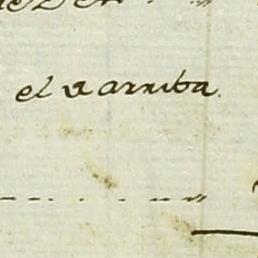 el de arriba.